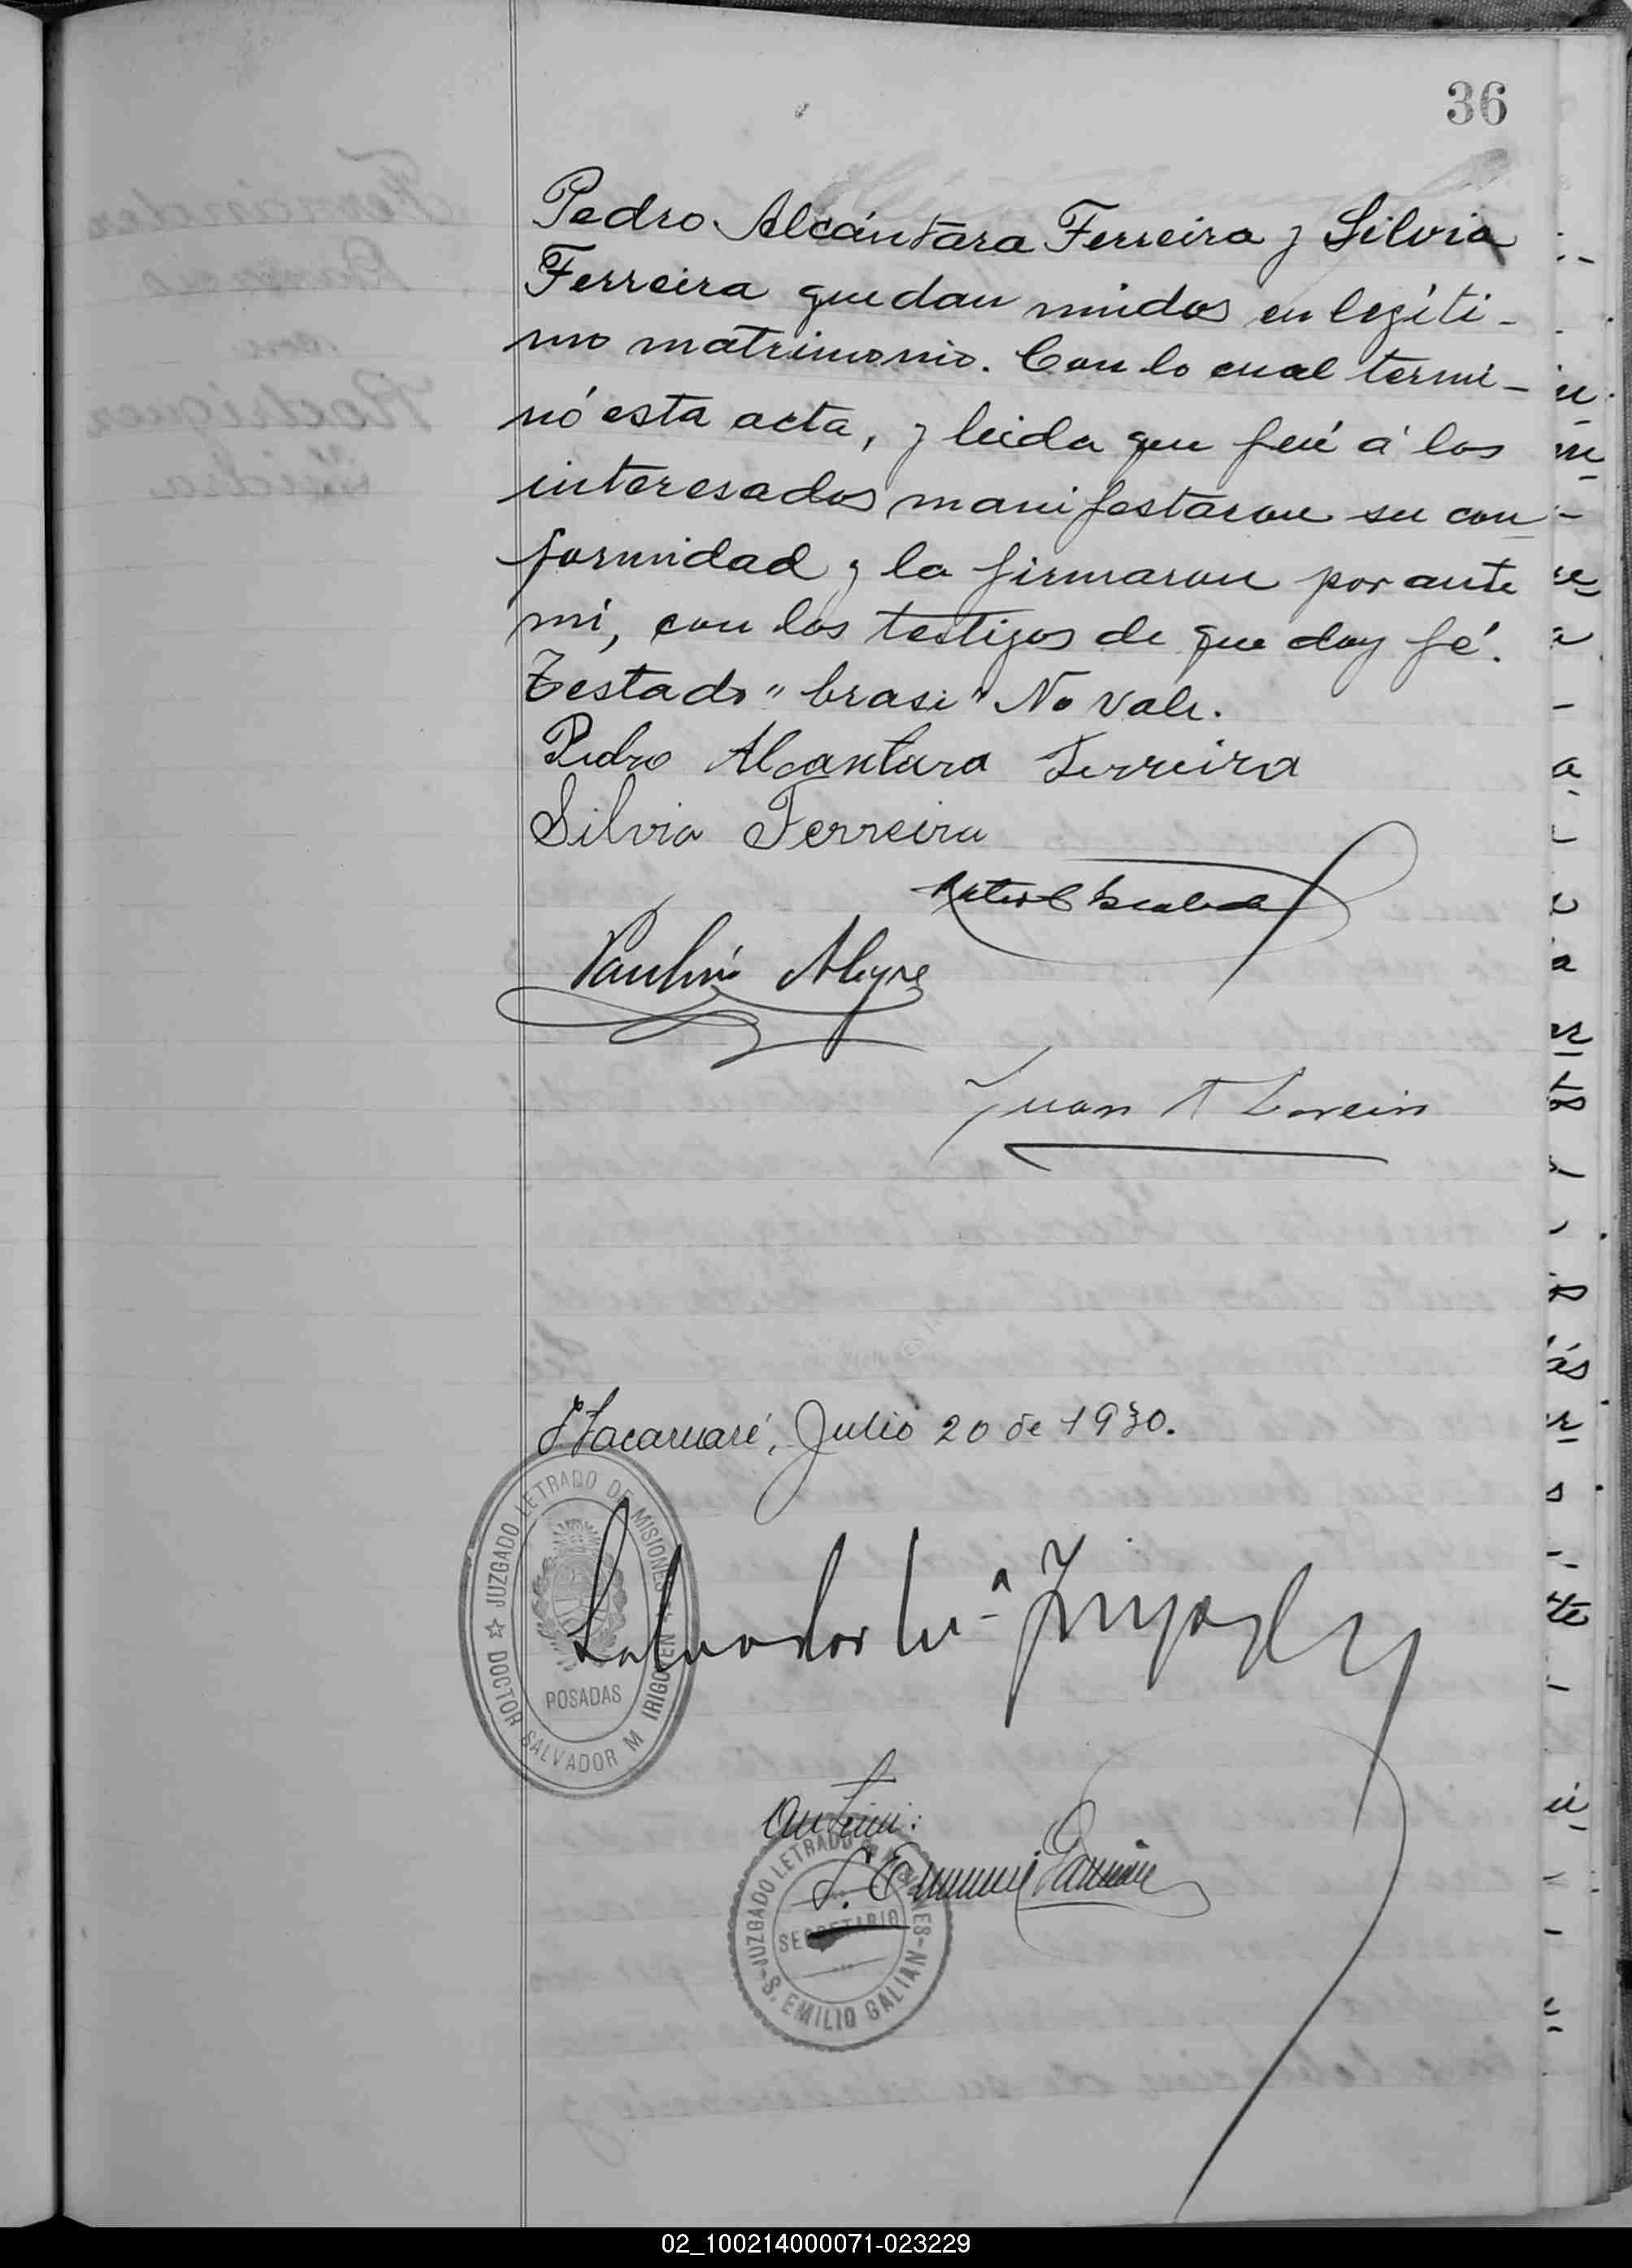 36
Pedro Alcántara Ferreira y Silvia
Ferreira quedan unidos en legíti-
mo matrimonio. Con lo cual termi-
nó esta acta, y leida que fué á los
interesados manifestaron su con-
formidad y la firmaron por ante
mí, con los testigos de que doy fé.
Testado "brasi" No vale.
Pedro Alcantara Ferreira
Silvia Ferreira
Alegre
Juan A
Itacaruaré, Julio 20 de 1930.
JUZGADO LETRADO DE MISIONES
DOCTOR SALVADOR M IRIGOYEN
POSADAS
Salvador Ma Irigoyen
Ante mi:
S. Emilio Galian
JUZGADO LETRADO MISIONES
SECRETARIO
S. EMILIO GALIAN
02_100214000071-023229